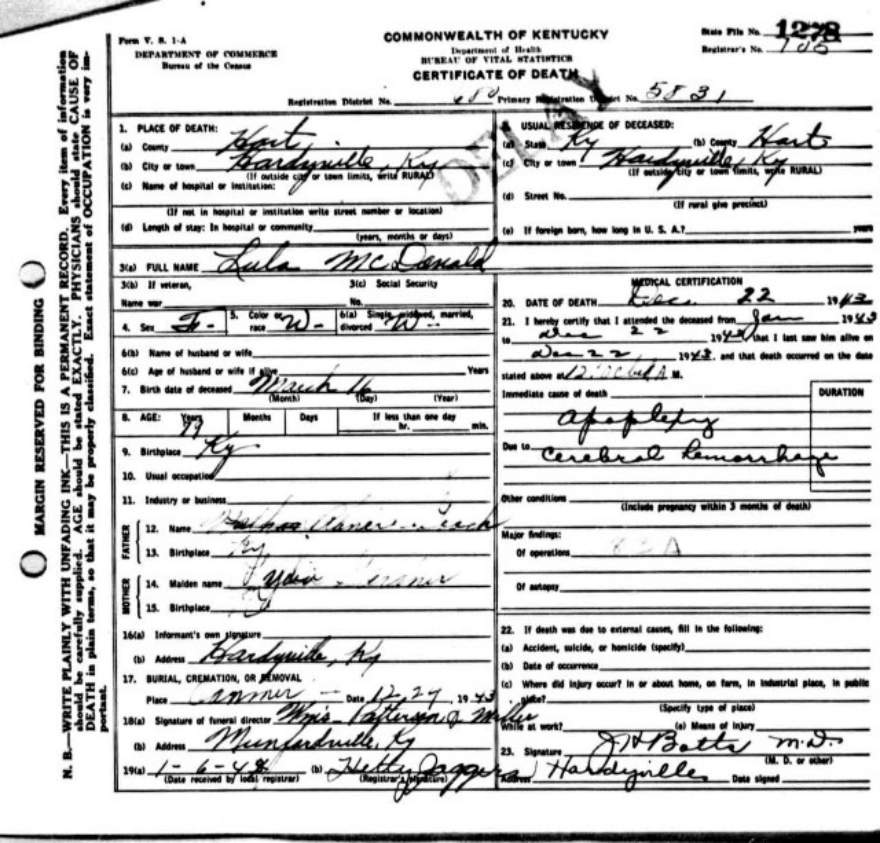 Form V. S. 1-A
DEPARTMENT OF COMMERCE
Bureau of the Census
COMMONWEALTH OF KENTUCKY
Department of Health
BUREAU OF VITAL STATISTICS
CERTIFICATE OF DEATH
State File No. 1278
Registrar's No.
Registration District No. 680 Primary Registration District No. 5831
DELAY
MARGIN RESERVED FOR BINDING
N. B.—WRITE PLAINLY WITH UNFADING INK—THIS IS A PERMANENT RECORD. Every item of information
should be carefully supplied. AGE should be stated EXACTLY. PHYSICIANS should state CAUSE OF
DEATH in plain terms, so that it may be properly classified. Exact statement of OCCUPATION is very im-
portant.
1. PLACE OF DEATH:
(a) County Hart
(b) City or town Hardyville, Ky
(If outside city or town limits, write RURAL)
(c) Name of hospital or institution:
(If not in hospital or institution write street number or location)
(d) Length of stay: In hospital or community
(years, months or days)
2. USUAL RESIDENCE OF DECEASED:
(a) State Ky (b) County Hart
(c) City or town Hardyville, Ky
(If outside city or town limits, write RURAL)
(d) Street No.
(If rural give precinct)
(e) If foreign born, how long in U. S. A.? years
3(a) FULL NAME Lula McDonald
3(b) If veteran, 3(c) Social Security
Name war No.
4. Sex F- 5. Color or race W- 6(a) Single, widowed, married, divorced W--
6(b) Name of husband or wife
6(c) Age of husband or wife if alive Years
7. Birth date of deceased March 16
(Month) (Day) (Year)
8. AGE: Years Months Days If less than one day
79 hr. min.
9. Birthplace Ky
10. Usual occupation
11. Industry or business
FATHER
12. Name
13. Birthplace Ky
MOTHER
14. Maiden name Lydia
15. Birthplace
16(a) Informant's own signature
(b) Address Hardyville, Ky
17. BURIAL, CREMATION, OR REMOVAL
Place Canmer — Date 12-27, 1943
18(a) Signature of funeral director Patterson & Miller
(b) Address Munfordville, Ky
19(a) 1-6-44 (b) Hetty Jaggers
(Date received by local registrar) (Registrar's signature)
MEDICAL CERTIFICATION
20. DATE OF DEATH Dec. 22 1943
21. I hereby certify that I attended the deceased from Jan 1943
to Dec 22 1943 that I last saw him alive on
Dec 22, 1943, and that death occurred on the date
stated above at M.
Immediate cause of death DURATION
apoplexy
Due to cerebral hemorrhage
Other conditions
(Include pregnancy within 3 months of death)
Major findings:
Of operations 83A
Of autopsy
22. If death was due to external causes, fill in the following:
(a) Accident, suicide, or homicide (specify)
(b) Date of occurrence
(c) Where did injury occur? In or about home, on farm, in industrial place, in public
place?
(Specify type of place)
While at work? (e) Means of injury
23. Signature J H Botts M.D.
(M. D. or other)
Address Hardyville Date signed